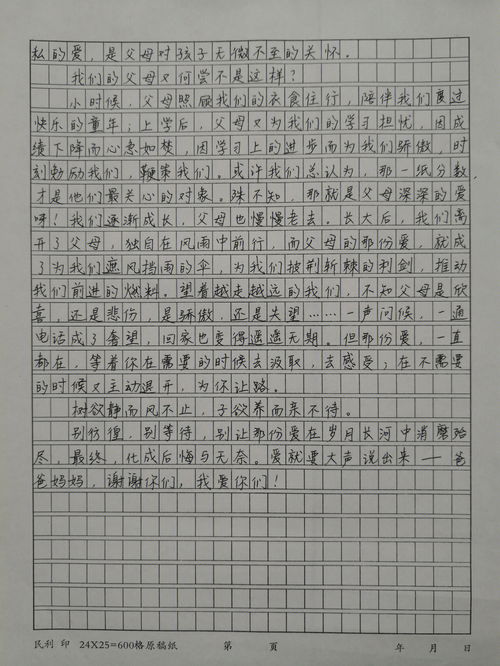 私的爱，是父母对孩子无微不至的关怀。
我们的父母又何尝不是这样？
小时候，父母照顾我们的衣食住行，陪伴我们度过
快乐的童年；上学后，父母又为我们的学习担忧，因成
绩下降而心急如焚，因学习上的进步而为我们骄傲，时
刻勉励我们，鞭策我们。或许我们总认为，那一纸分数
才是他们最关心的对象。殊不知，那就是父母深深的爱
呀！我们逐渐成长，父母也慢慢老去。长大后，我们离
开了父母，独自在风雨中前行，而父母的那份爱，就成
了为我们遮风挡雨的伞，为我们披荆斩棘的利剑，推动
我们前进的燃料。望着越走越远的我们，不知父母是欣
喜，还是悲伤，是骄傲，还是失望……一声问候，一通
电话成了奢望，回家也变得遥遥无期。但那份爱，一直
都在，等着你在需要的时候去汲取，去感受；在不需要
的时候又主动退开，为你让路。
树欲静而风不止，子欲养而亲不待。
别彷徨，别等待，别让那份爱在岁月长河中消磨殆
尽，最终，化成后悔与无奈。爱就要大声说出来——爸
爸妈妈，谢谢你们，我爱你们！
民利 印 24X25=600格原稿纸 第 页 年 月 日